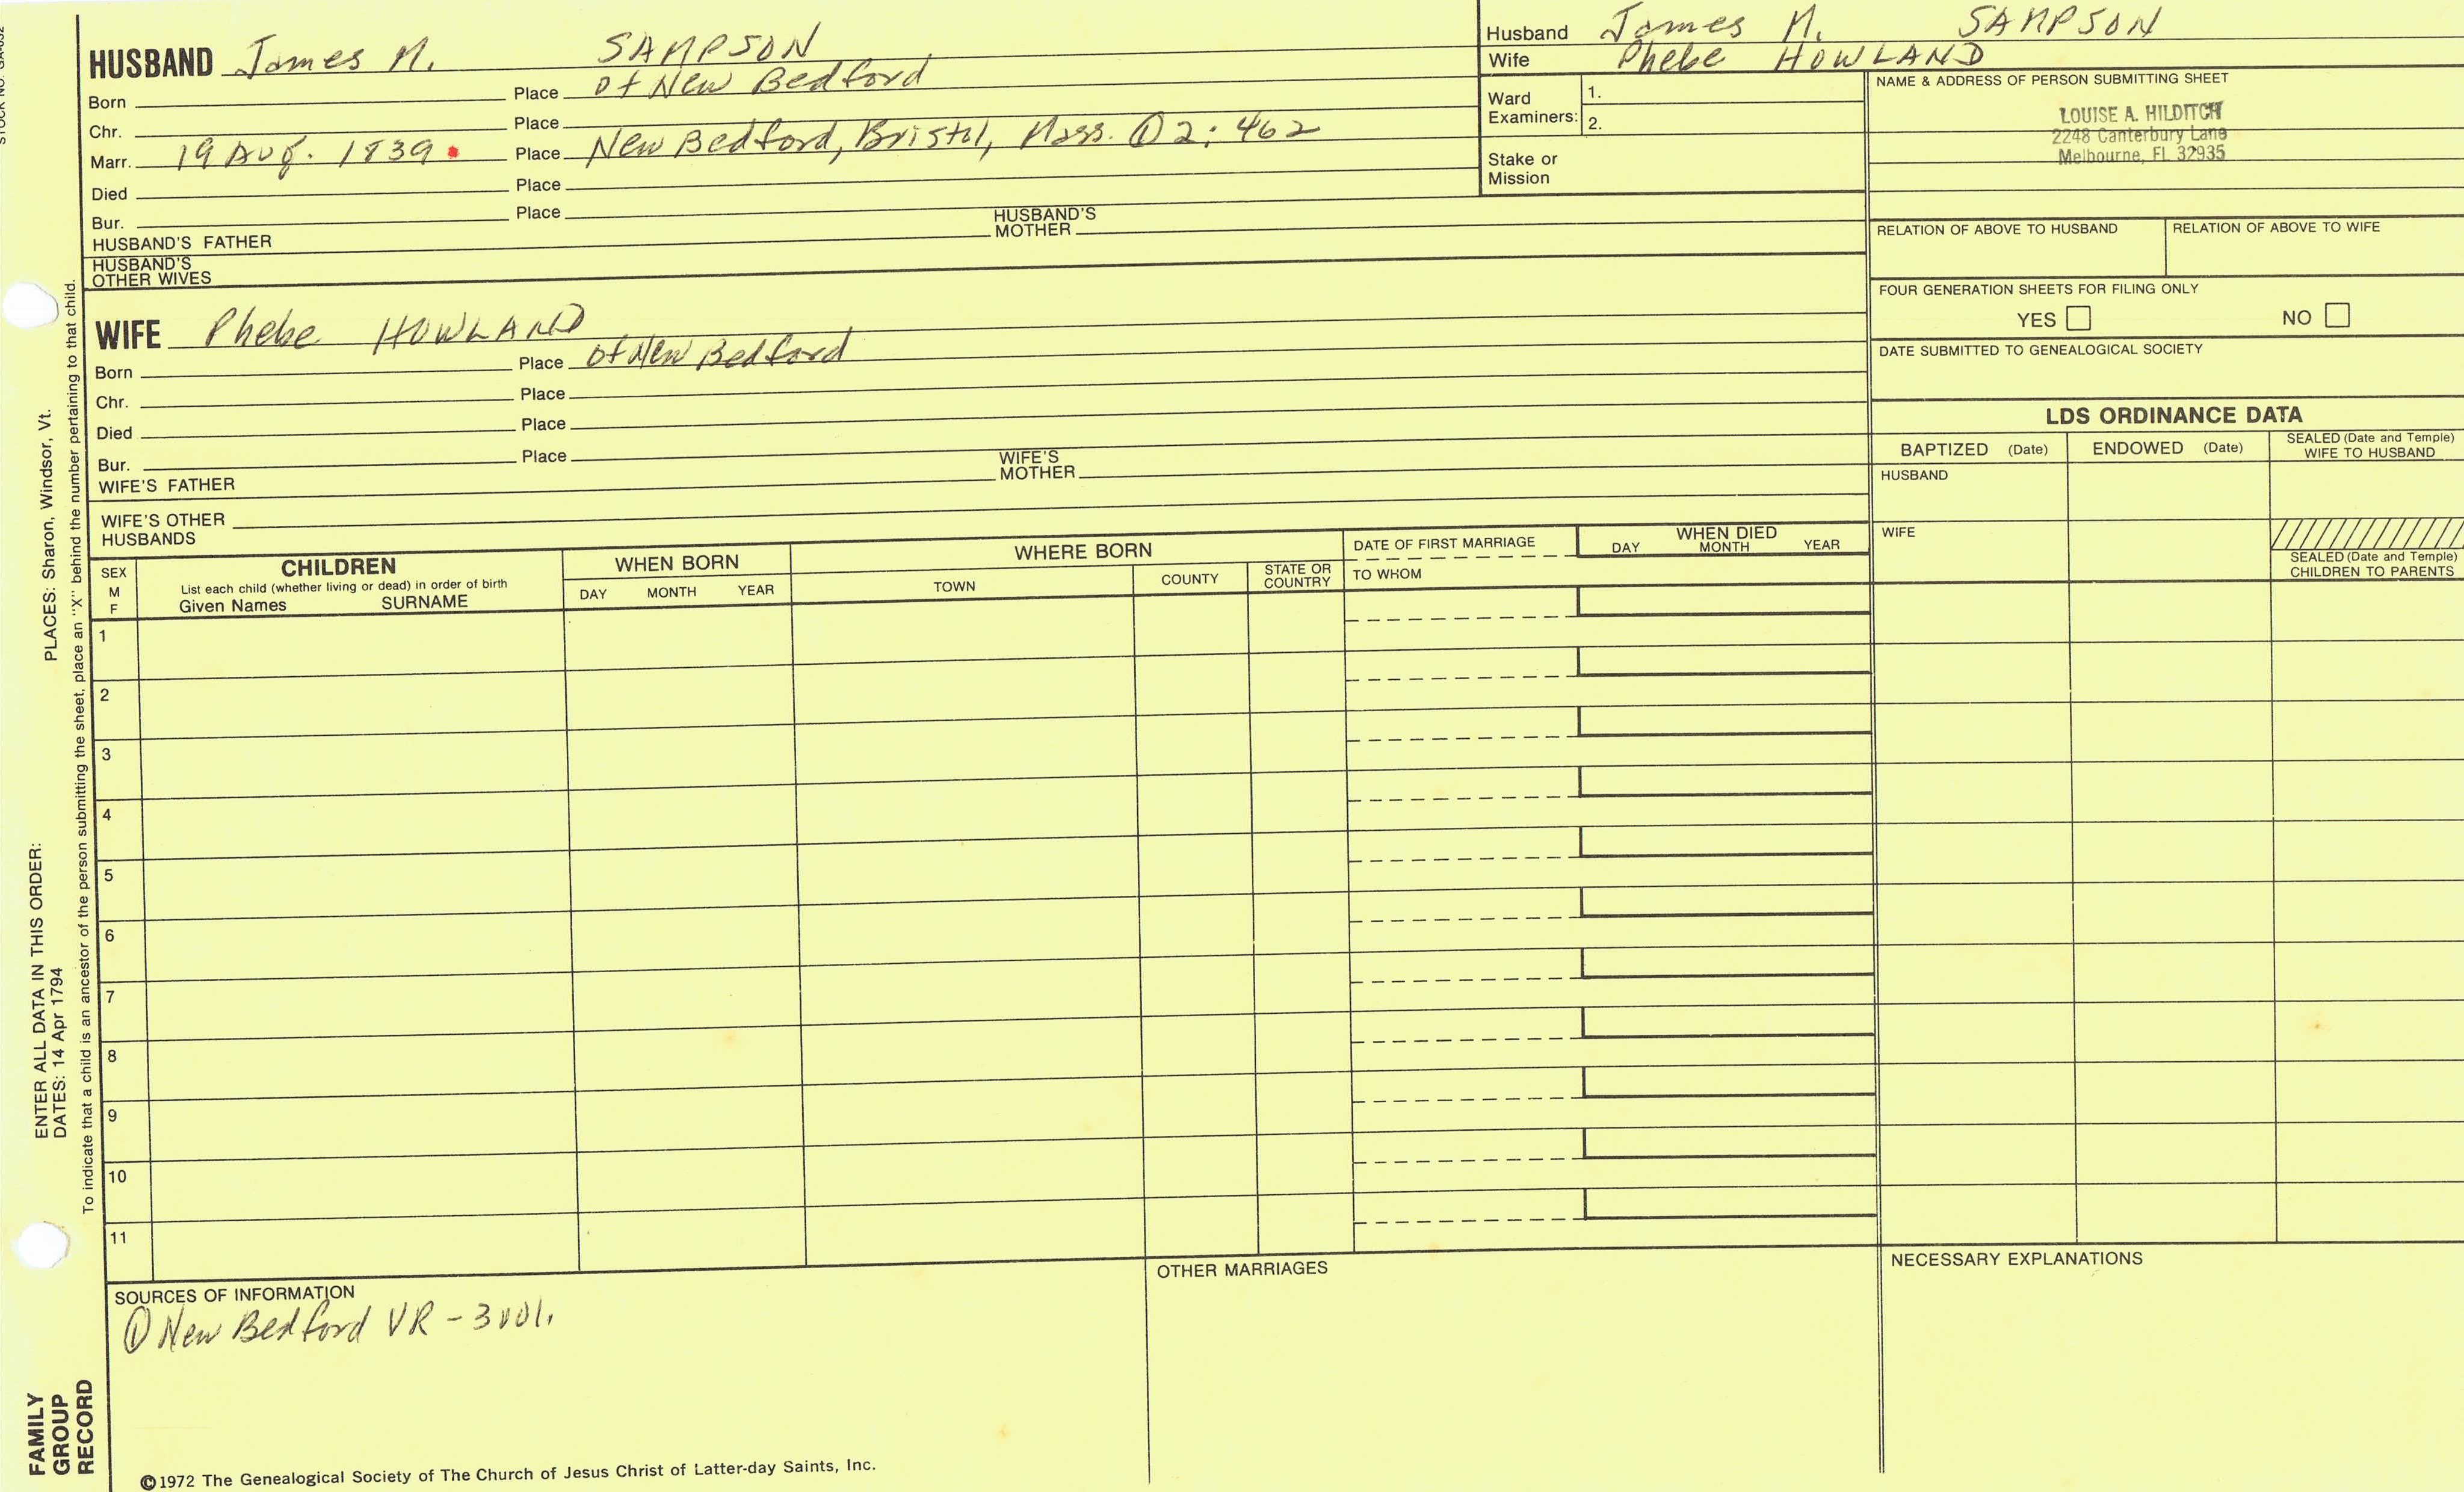 HUSBAND James M. SAMPSON
Born Place of New Bedford
Chr. Place
Marr. 19 Aug. 1839 Place New Bedford, Bristol, Mass. ① 2: 462
Died Place
Bur. Place
HUSBAND'S FATHER HUSBAND'S MOTHER
HUSBAND'S OTHER WIVES
WIFE Phebe HOWLAND
Born Place of New Bedford
Chr. Place
Died Place
Bur. Place
WIFE'S FATHER WIFE'S MOTHER
WIFE'S OTHER HUSBANDS
Husband James M. SAMPSON
Wife Phebe HOWLAND
Ward Examiners: 1.
2.
Stake or Mission
NAME & ADDRESS OF PERSON SUBMITTING SHEET
LOUISE A. HILDITCH
2248 Canterbury Lane
Melbourne, FL 32935
RELATION OF ABOVE TO HUSBAND RELATION OF ABOVE TO WIFE
FOUR GENERATION SHEETS FOR FILING ONLY
YES NO
DATE SUBMITTED TO GENEALOGICAL SOCIETY
LDS ORDINANCE DATA
BAPTIZED (Date) ENDOWED (Date) SEALED (Date and Temple) WIFE TO HUSBAND
HUSBAND
WIFE
SEALED (Date and Temple) CHILDREN TO PARENTS
SEX M F
CHILDREN
List each child (whether living or dead) in order of birth
Given Names SURNAME
WHEN BORN
DAY MONTH YEAR
WHERE BORN
TOWN COUNTY STATE OR COUNTRY
DATE OF FIRST MARRIAGE
TO WHOM
WHEN DIED
DAY MONTH YEAR
1
2
3
4
5
6
7
8
9
10
11
SOURCES OF INFORMATION
① New Bedford VR - 3 vol.
OTHER MARRIAGES
NECESSARY EXPLANATIONS
©1972 The Genealogical Society of The Church of Jesus Christ of Latter-day Saints, Inc.
FAMILY GROUP RECORD
ENTER ALL DATA IN THIS ORDER:
DATES: 14 Apr 1794
PLACES: Sharon, Windsor, Vt.
To indicate that a child is an ancestor of the person submitting the sheet, place an "X" behind the number pertaining to that child.